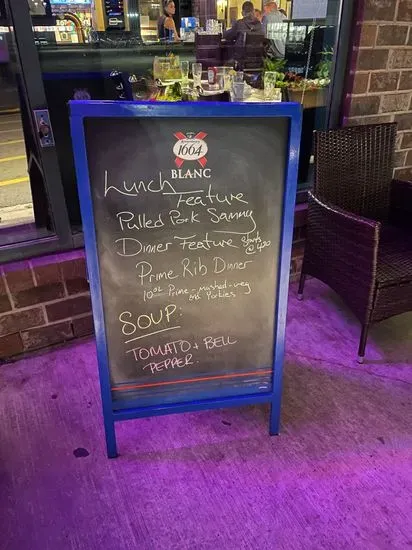 1664
BLANC
Lunch Feature
Pulled Pork Sammy
Dinner Feature Starts @ 4:30
Prime Rib Dinner
10oz Prime - mashed - veg
and Yorkies
SOUP:
TOMATO + BELL
PEPPER.